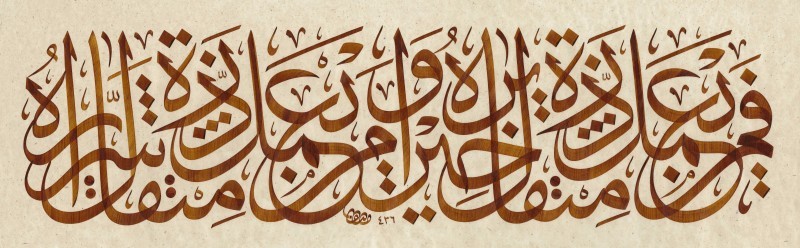 فمن يعمل مثقال ذرة خيرا يره ومن يعمل مثقال ذرة شرا يره
٤٣٦